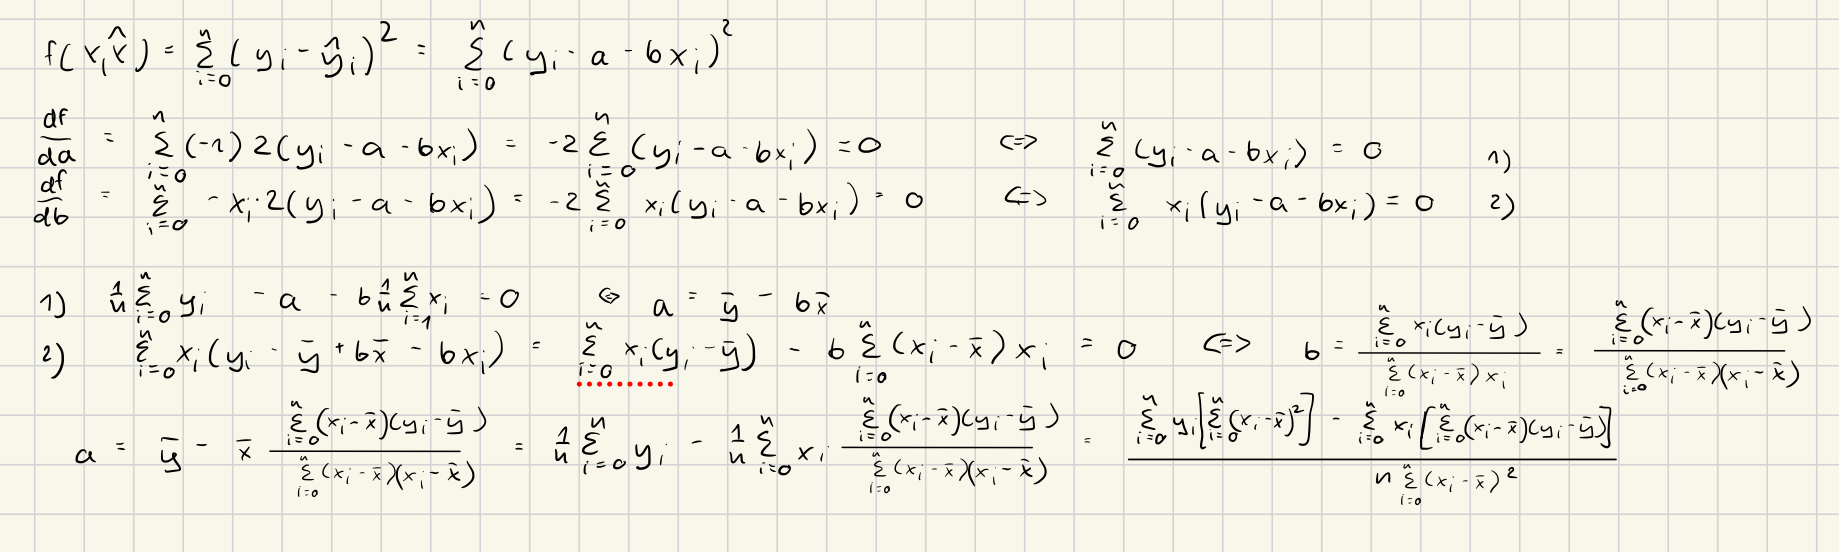 f(x,x̂) = Σ_{i=0}^{n} (y_i - ŷ_i)^2 = Σ_{i=0}^{n} (y_i - a - bx_i)^2
df/da = Σ_{i=0}^{n} (-1) 2(y_i - a - bx_i) = -2 Σ_{i=0}^{n} (y_i - a - bx_i) = 0 <=> Σ_{i=0}^{n} (y_i - a - bx_i) = 0 1)
df/db = Σ_{i=0}^{n} - x_i · 2(y_i - a - bx_i) = -2 Σ_{i=0}^{n} x_i(y_i - a - bx_i) = 0 <=> Σ_{i=0}^{n} x_i(y_i - a - bx_i) = 0 2)
1) 1/n Σ_{i=0}^{n} y_i - a - b 1/n Σ_{i=1}^{n} x_i = 0 <=> a = ȳ - bx̄
2) Σ_{i=0}^{n} x_i(y_i - ȳ + bx̄ - bx_i) = Σ_{i=0}^{n} x_i(y_i - ȳ) - b Σ_{i=0}^{n} (x_i - x̄) x_i = 0 <=> b = (Σ_{i=0}^{n} x_i(y_i - ȳ)) / (Σ_{i=0}^{n} (x_i - x̄) x_i) = (Σ_{i=0}^{n} (x_i - x̄)(y_i - ȳ)) / (Σ_{i=0}^{n} (x_i - x̄)(x_i - x̄))
a = ȳ - x̄ (Σ_{i=0}^{n} (x_i - x̄)(y_i - ȳ)) / (Σ_{i=0}^{n} (x_i - x̄)(x_i - x̄)) = 1/n Σ_{i=0}^{n} y_i - 1/n Σ_{i=0}^{n} x_i (Σ_{i=0}^{n} (x_i - x̄)(y_i - ȳ)) / (Σ_{i=0}^{n} (x_i - x̄)(x_i - x̄)) = (Σ_{i=0}^{n} y_i [Σ_{i=0}^{n} (x_i - x̄)^2] - Σ_{i=0}^{n} x_i [Σ_{i=0}^{n} (x_i - x̄)(y_i - ȳ)]) / (n Σ_{i=0}^{n} (x_i - x̄)^2)